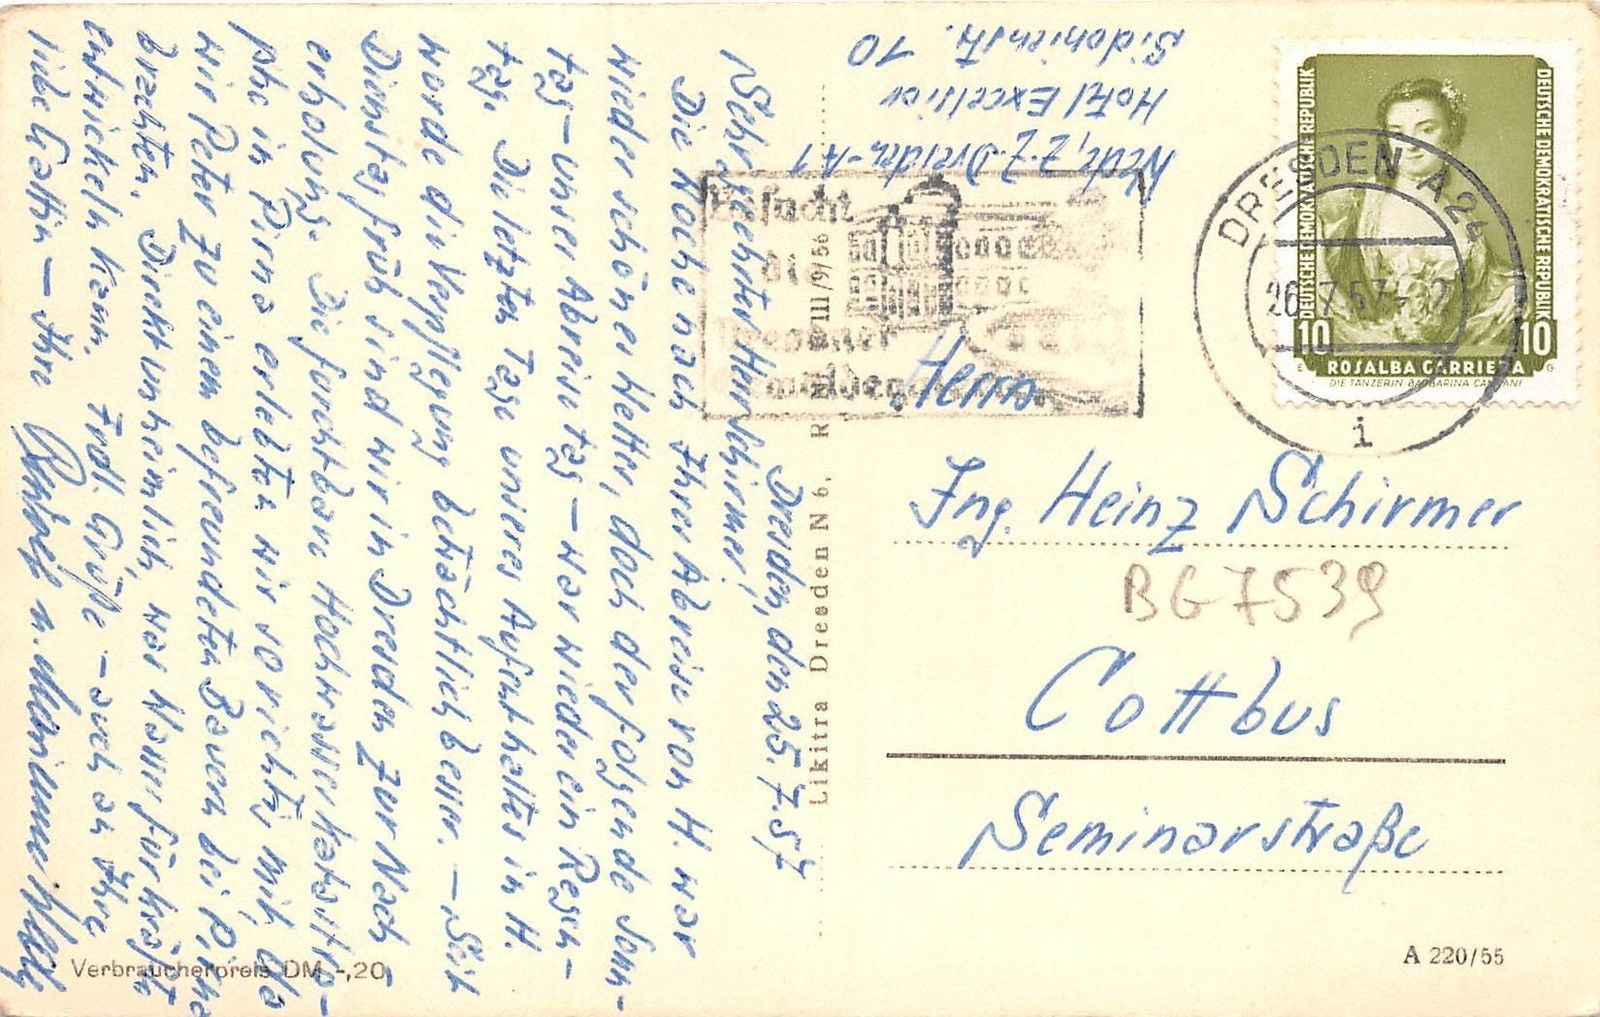 Dresden, den 25.7.57
Sehr geehrter Herr Schirmer!
Die Woche nach Ihrer Abreise von H. war
wieder schönes Wetter, doch der folgende Sonn-
tag – unser Abreisetag – war wieder ein Regen-
tag. Die letzten Tage unseres Aufenthaltes in H.
wurde die Verpflegung beträchtlich besser. – Seit
Dienstag früh sind wir in Dresden zur Nach-
erholung. Die furchtbare Hochwasserkatastro-
phe in Pirna erlebten wir so richtig mit, da
wir Peter zu einem befreundeten Bauern bei Pirna
brachten. Direkt unheimlich, was Wasser für Kräfte
entwickeln kann. Frdl. Grüße – auch an Ihre
liebe Gattin – Ihre
u. Marianne
z. Z. Dresden-A 1
Hotel Excelsior
Sidonienstr. 10
DEUTSCHE DEMOKRATISCHE REPUBLIK
DEUTSCHE DEMOKRATISCHE REPUBLIK
10 10
ROSALBA CARRIERA
DIE TÄNZERIN BARBARINA CAMPANI
DRESDEN A24
26.7.57
i
Besucht
die
Dresdner
Herrn
Ing. Heinz Schirmer
BG 7539
Cottbus
Seminarstraße
Likitra Dresden N 6. R III/9/56
Verbraucherpreis DM -,20
A 220/55